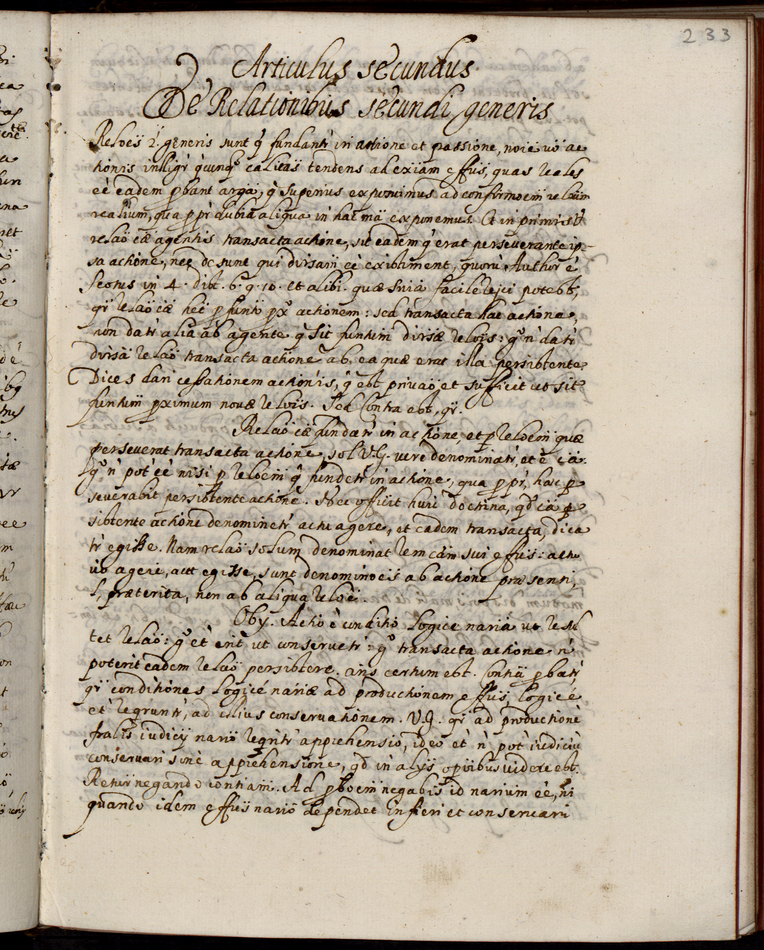 233
Articulus secundus
De Relationibus secundi generis
Reloës 2.ⁱ generis sunt q̃ fundantr̃ in actione et passione, noïe vö ac
tionis intelligr̃ quinq̃ calitas tendens ad exiam effus, quas reales
eë eadem pbant arga, q̃ superius exposuimus ad confirmoem relaöm
realium, qua ppr̃ dubia aliqua in hac mã exponemus. Et in primis ut
relaö cæ agentis transacta actione, sit eadem q̃ erat perseverante ip-
sa actione, nec de sunt qui divrsam eë existiment, quorũ Author ë
Scotus in 4. dist. 6. q. 10. et alibi. quæ sñia facile rejci potest,
qr̃ relaö cæ het p funtũ px̃ actionem: sed transacta hac actione,
non datr̃ alia ab agente q̃ sit funtum divrsæ reloïs: g̃ ñ datr̃
divrsa relaö transacta actione ab ea quæ erat illa persistente.
Dices dari cessationem actionis, q̃ est privaö, et sufficit ut sit
funtum pximum novæ reloïs. Sed Contra est, qr̃
Relaö cæ fundatr̃ in actione, et p reloem quæ
perseverat transacta actione, sol V.G. vere denominatr̃, et ë cã:
g̃ ñ pot eë nisi p reloem q̃ fundetr̃ in actione, qua ppr̃, hæc p
severabit persistente actione. Nec officit huic doctrina, qd cã p
sistente actione denominetr̃ actu agere, et eadem transacta, dica
tr̃ egisse. Nam relaö solum denominat rem cãm sui effus: actu
vö agere, aut egisse, sunt denominoeis ab actione præsenti,
l, præterita, non ab aliqua reloë.
Obj. Actio ë conditio Logice naria ut resul
tet relaö: g̃ et erit ut conservetr̃: g̃ transacta actione ñ
poterit eadem relaö persistere. ans certum est. Contia pbatr̃
qr̃ conditiones Logicé nariæ ad productionem effus, logicé
et reqruntr̃, ad illius conservationem. V.G. qr̃ ad productione
fralis iudicij nario reqritr̃ apprehensio, ideo et ñ pot iudiciũ
conservari sine apprehensione, qd in alijs opribus videre est.
Retur negando contiam. Ad pboem negabis id narium eë, ni
quando idem effus nario dependet in fieri et conservari